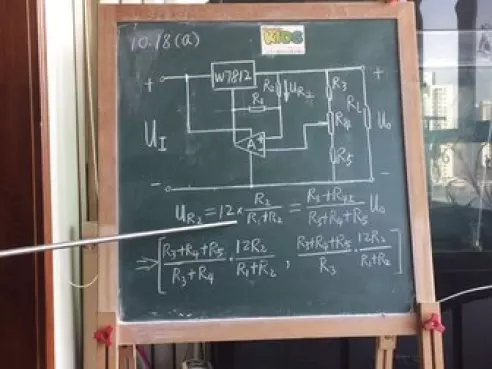 10.18(a)
KIDS
+ W7812 +
R2 UR2 R3
R1 R4 RL
UI A + U0
R5
- -
UR2 = 12 × R2/(R1+R2) = (R3+R4)/(R3+R4+R5) U0
⇒ [ (R3+R4+R5)/(R3+R4) · 12R2/(R1+R2) , (R3+R4+R5)/R3 · 12R2/(R1+R2) ]